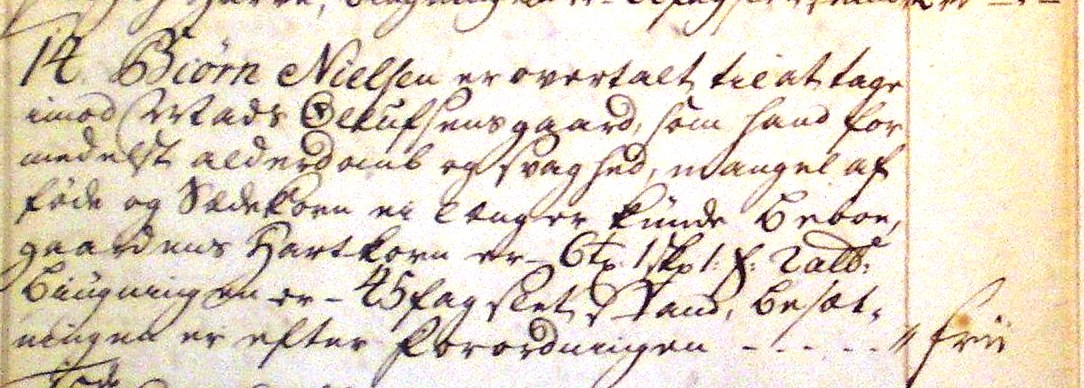 14. Biørn Nielsen er overtalt til at tage
imod Mads Olufsens gaard, som hand for
medelst alderdomb og svaghed, mangel af
føde og Sædekorn ei længer kunde beboe,
gaardens Hartkorn er - 6 tr. 1 skp 1: f:
Biugningen er - 45 fag slet Stand, besæt-
ningen er efter Forordningen - - - - - " frii